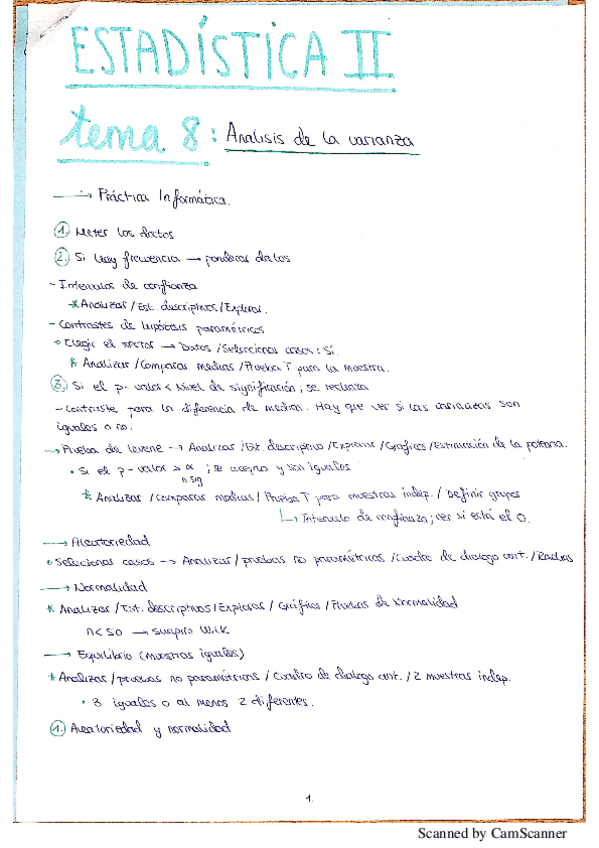 ESTADÍSTICA II
tema 8: Análisis de la varianza
→ Práctica Informática.
1. Meter los datos
2. Si hay frecuencia → ponderar datos
- Intervalos de confianza
* Analizar / Est. descriptivos / Explorar.
- Contrastes de hipótesis paramétricos
Elegir el sector → Datos / Seleccionar casos: Si.
* Analizar / Comparar medias / Prueba T para la muestra.
3. Si el p-valor < Nivel de significación; se rechaza
- Contraste para la diferencia de medias. Hay que ver si las varianzas son
iguales o no.
→ Prueba de levene → Analizar / Est. descriptivo / Explorar / Gráficos / Estimación de la potencia.
• Si el p-valor > α ; se acepta y son iguales
n sig
* Analizar / comparar medias / Prueba T para muestras indep. / Definir grupos
↳ Intervalo de confianza; ver si está el 0.
→ Aleatoriedad
• Seleccionar casos → Analizar / pruebas no paramétricas / cuadro de dialogo ant. / Rachas
→ Normalidad
* Analizar / Est. descriptivos / Explorar / Gráficos / Pruebas de Normalidad
n<50 → Shapiro Wilk
→ Equilibrio (muestras iguales)
* Analizar / pruebas no paramétricas / Cuadro de dialogo ant. / 2 muestras indep.
• 3 iguales o al menos 2 diferentes.
1. Aleatoriedad y normalidad
1.
Scanned by CamScanner